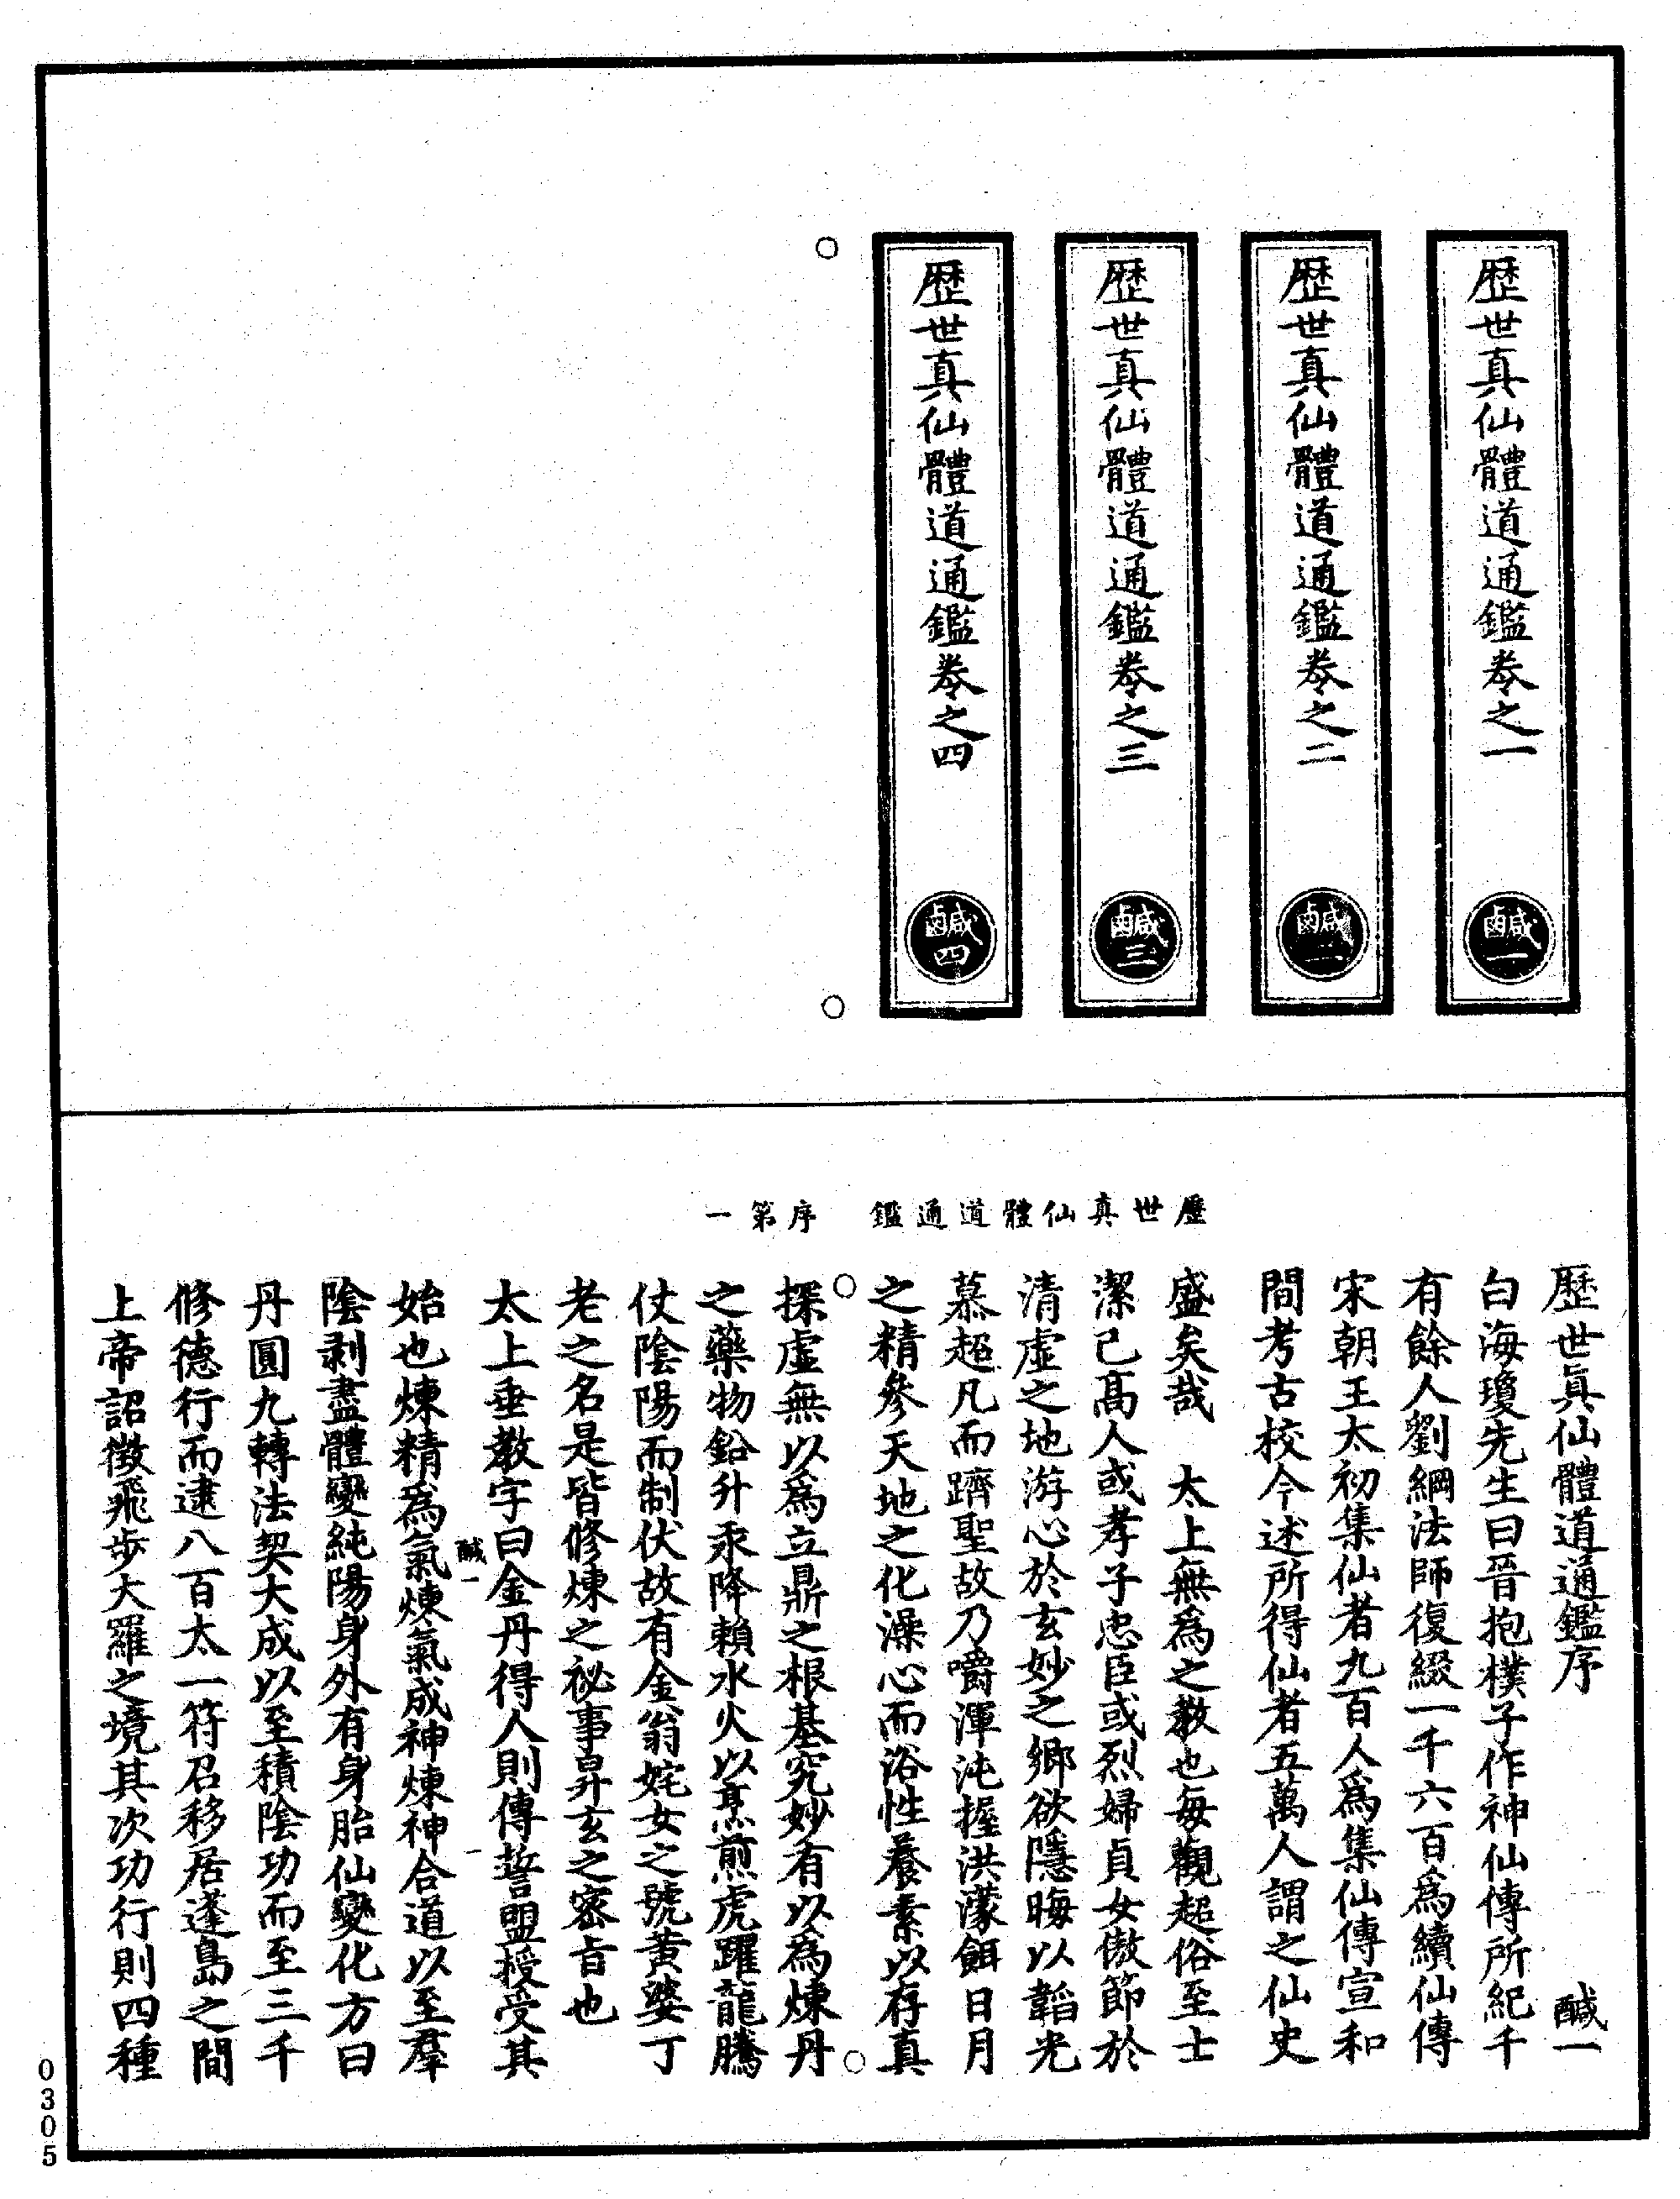 歷世真仙體道通鑑卷之一
鹹一
歷世真仙體道通鑑卷之二
鹹二
歷世真仙體道通鑑卷之三
鹹三
歷世真仙體道通鑑卷之四
鹹四
歷世真仙體道通鑑　序第一
歷世眞仙體道通鑑序　鹹一
白海瓊先生曰晉抱樸子作神仙傳所紀千
有餘人劉綱法師復綴一千六百爲續仙傳
宋朝王太初集仙者九百人爲集仙傳宣和
間考古校今述所得仙者五萬人謂之仙史
盛矣哉　太上無爲之教也每觀超俗至士
潔己高人或孝子忠臣或烈婦貞女傲節於
清虛之地游心於玄妙之鄉欲隱晦以韜光
慕超凡而躋聖故乃嚼渾沌握洪濛餌日月
之精參天地之化澡心而浴性養素以存真
探虛無以爲立鼎之根基究妙有以爲煉丹
之藥物鉛升汞降賴水火以烹煎虎躍龍騰
仗陰陽而制伏故有金翁姹女之號黃婆丁
老之名是皆修煉之祕事昇玄之密旨也
太上垂教字曰金丹得人則傳誓盟授受其
鹹一　一
始也煉精爲氣煉氣成神煉神合道以至羣
陰剥盡體變純陽身外有身胎仙變化方曰
丹圓九轉法契大成以至積陰功而至三千
修德行而逮八百太一符召移居蓬島之間
上帝詔徵飛步大羅之境其次功行則四種
0305